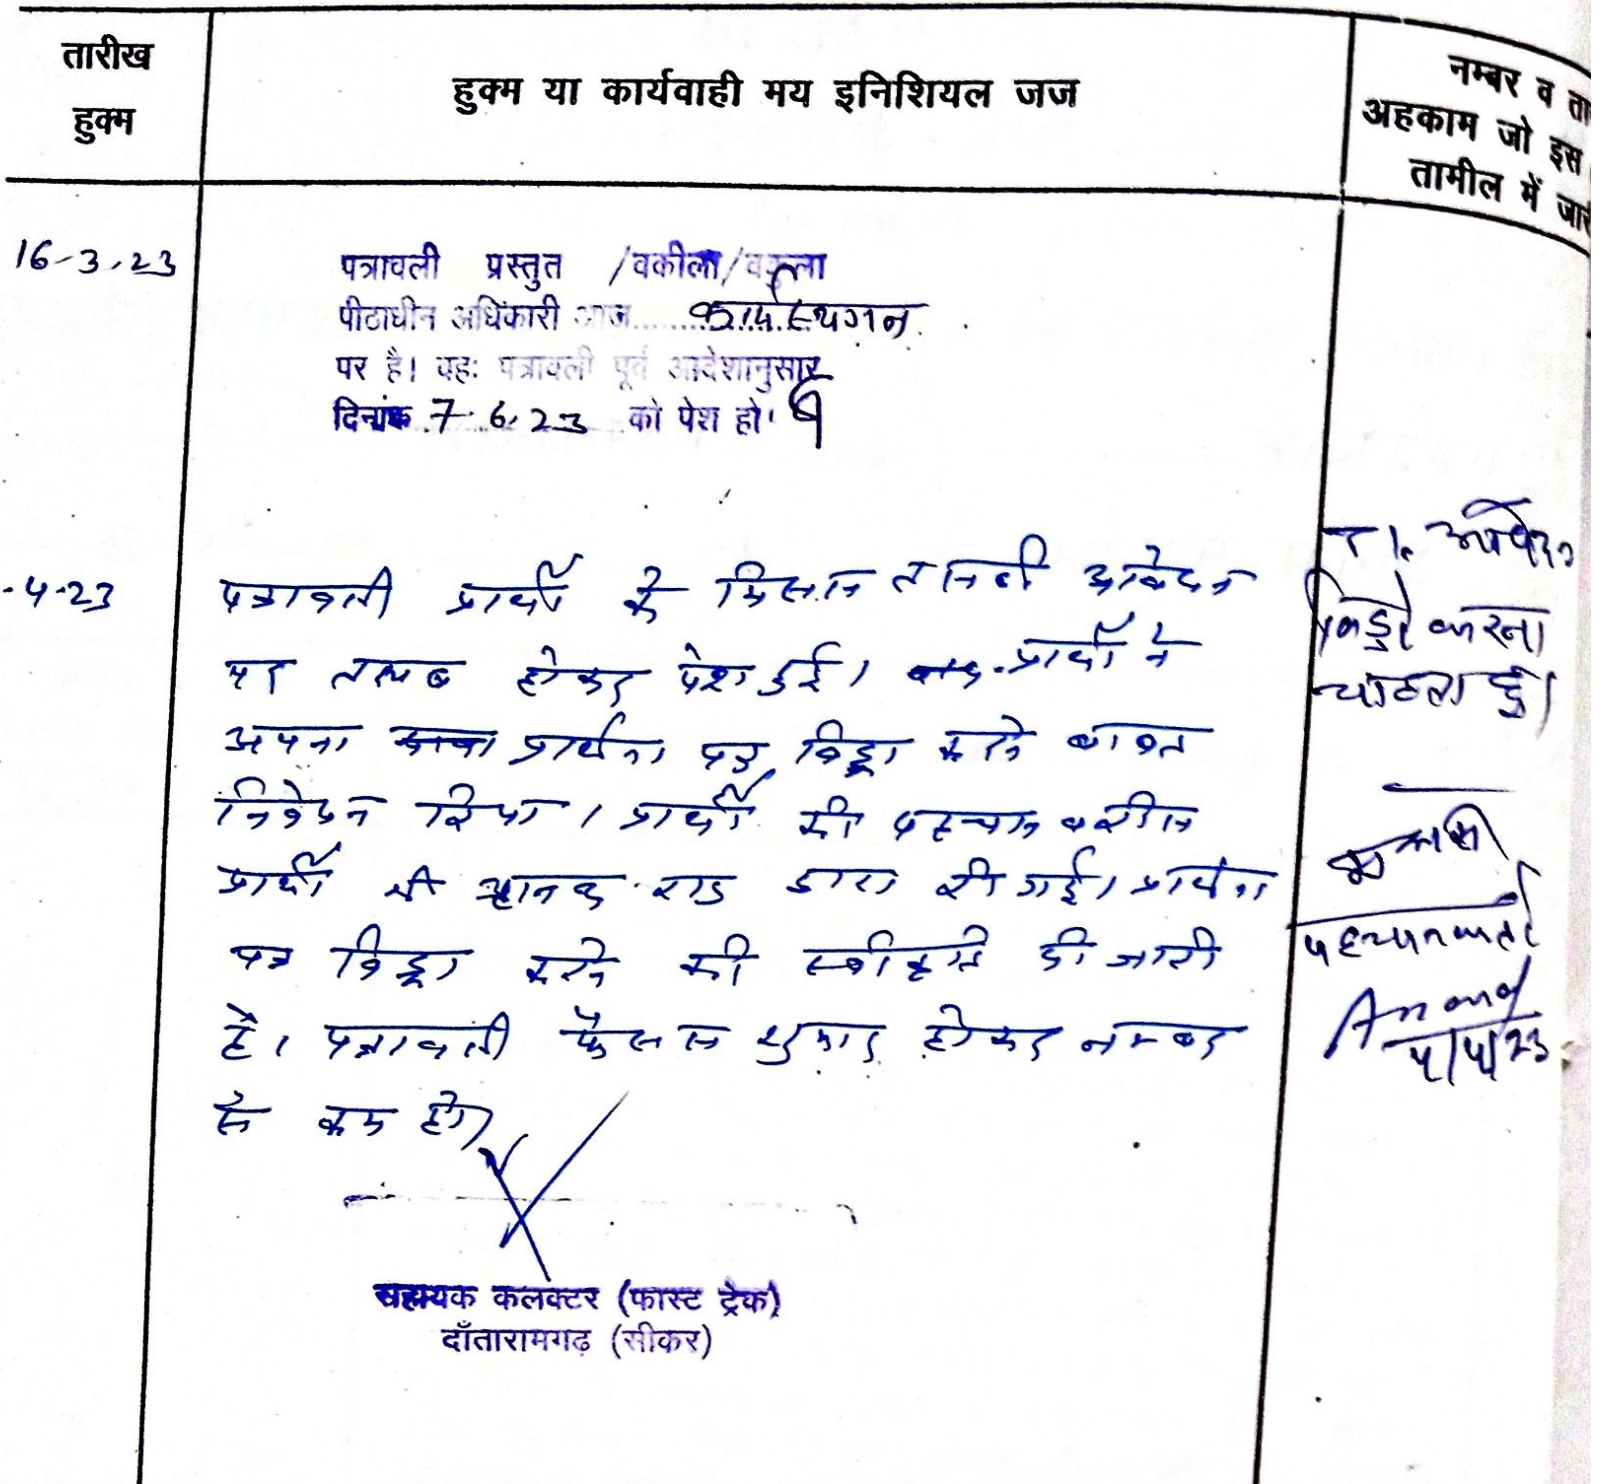 तारीख
हुक्म
हुक्म या कार्यवाही मय इनिशियल जज
नम्बर व ता
अहकाम जो इस
तामील में जारी
16-3-23
पत्रावली प्रस्तुत /वकीला/वकुला
पीठाधीन अधिकारी आज कार्य स्थगन
पर है। वहः पत्रावली पूर्व आदेशानुसार
दिनांक 7.6.23 को पेश हो।
-4-23
पत्रावली प्रार्थी के मिसल तलबी आवेदन
पर तलब होकर पेश हुई। प्रार्थी ने
अपना प्रार्थना पत्र विड्रा करने बाबत
निवेदन किया। प्रार्थी की पहचान वकील
प्रार्थी श्री द्वारा की गई। प्रार्थना
पत्र विड्रा करने की स्वीकृति दी जाती
है। पत्रावली फैसल शुमार होकर नम्बर
से कम हो।
सहायक कलक्टर (फास्ट ट्रेक)
दाँतारामगढ़ (सीकर)
विड्रो करना
चाहता हूँ।
पहचानकर्ता
Anand
4/4/23